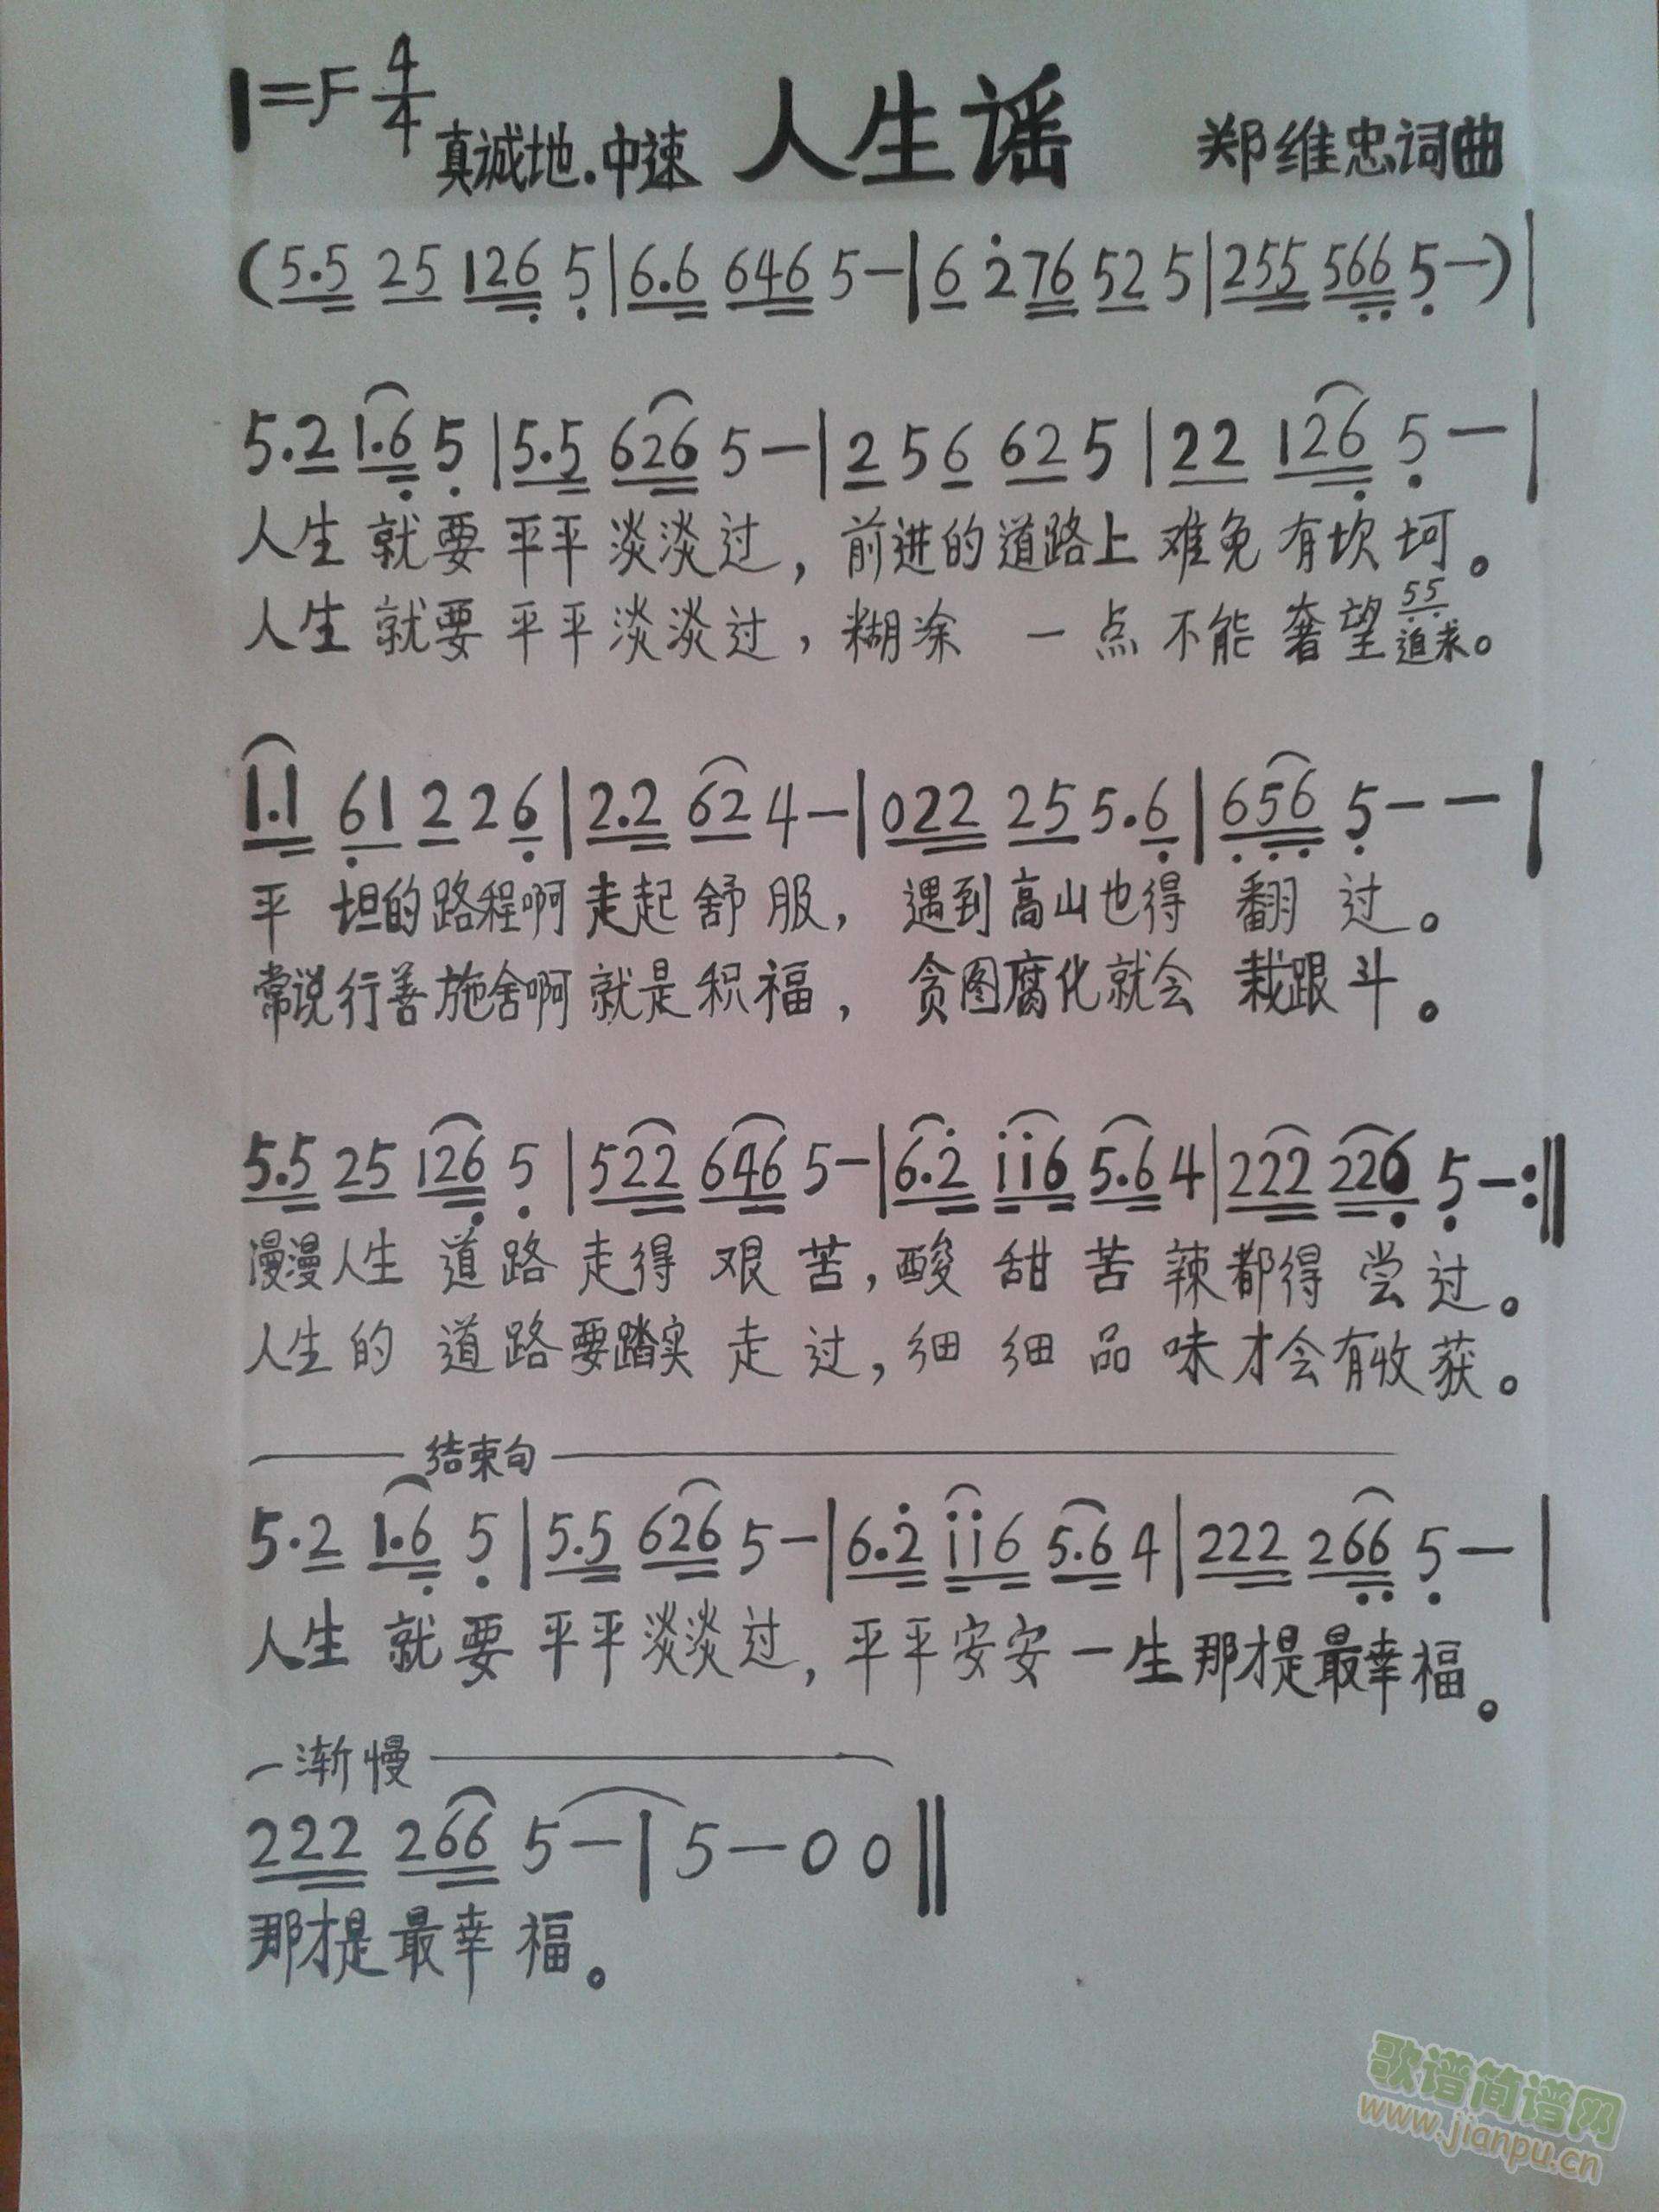 1=F 4/4 真诚地.中速 人生谣 郑维忠词曲
(5.5 25 126 5|6.6 646 5—|6 2 76 52 5|255 566 5—)|
5.2 1.6 5|5.5 626 5—|2 5 6 62 5|22 126 5—|
人生就要平平淡淡过，前进的道路上难免有坎坷。
55
人生就要平平淡淡过，糊涂一点不能奢望追求。
1.1 61 2 2 6|2.2 62 4—|022 25 5.6|656 5——|
平坦的路程啊走起舒服，遇到高山也得翻过。
常说行善施舍啊就是积福，贪图腐化就会栽跟斗。
5.5 25 126 5|522 646 5—|6.2 116 5.6 4|222 226 5—:‖
漫漫人生道路走得艰苦，酸甜苦辣都得尝过。
人生的道路要踏实走过，细细品味才会有收获。
结束句
5.2 1.6 5|5.5 626 5—|6.2 116 5.6 4|222 266 5—|
人生就要平平淡淡过，平平安安一生那才是最幸福。
渐慢
222 266 5—|5—0 0‖
那才是最幸福。
歌谱简谱网
www.jianpu.cn